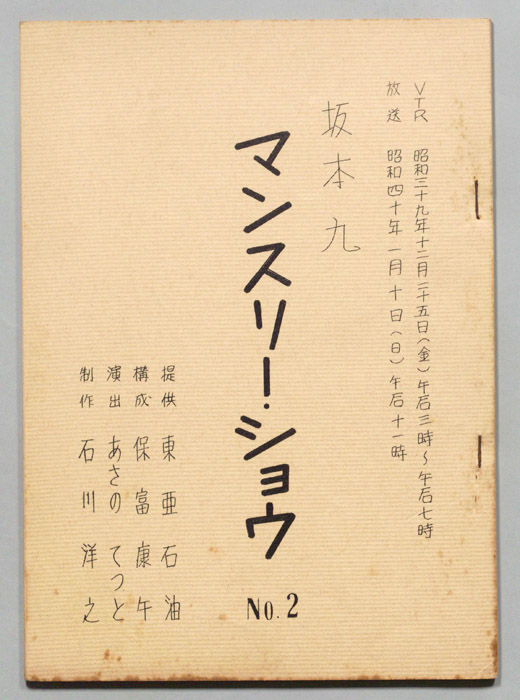 VTR 昭和三十九年十二月二十五日(金)午后三時~午后七時
放送 昭和四十年一月十日(日)午后十一時
坂本九
マンスリー・ショウ No.2
提供 東亜石油
構成 保富康午
演出 あさのてつと
制作 石川洋之